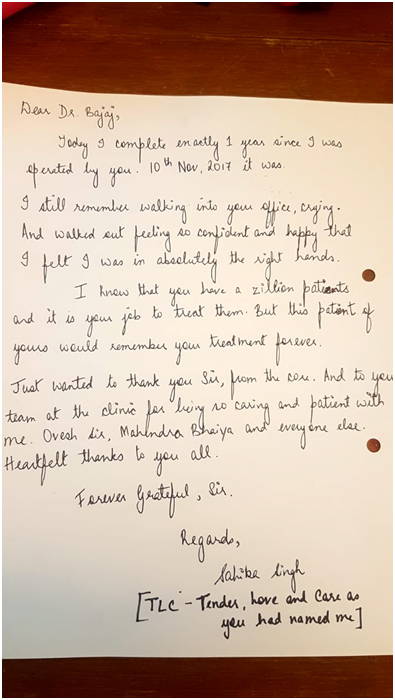 Dear Dr. Bajaj,
Today I complete exactly 1 year since I was
operated by you. 10th Nov, 2017 it was.
I still remember walking into your office, crying.
And walked out feeling so confident and happy that
I felt I was in absolutely the right hands.
I know that you have a zillion patients
and it is your job to treat them. But this patient of
yours would remember your treatment forever.
Just wanted to thank you Sir, from the core. And to you
team at the clinic for being so caring and patient with
me. Ovesh Sir, Mahendra Bhaiya and everyone else.
Heartfelt thanks to you all.
Forever Grateful, Sir.
Regards,
Singh
[TLC - Tender, Love and Care as
you had named me]